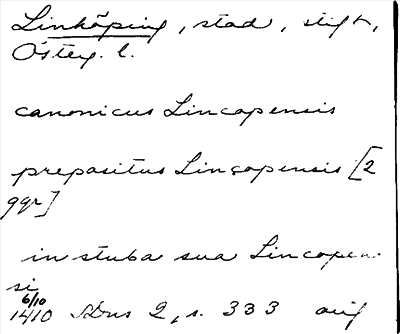 Linköping, stad, stift,
Österg. l.
canonicus Lincopensis
prepositus Lincopensis [2
ggr]
in stuba sua Lincopen-
si
6/10
14/10 SDns 2, s. 333 orig